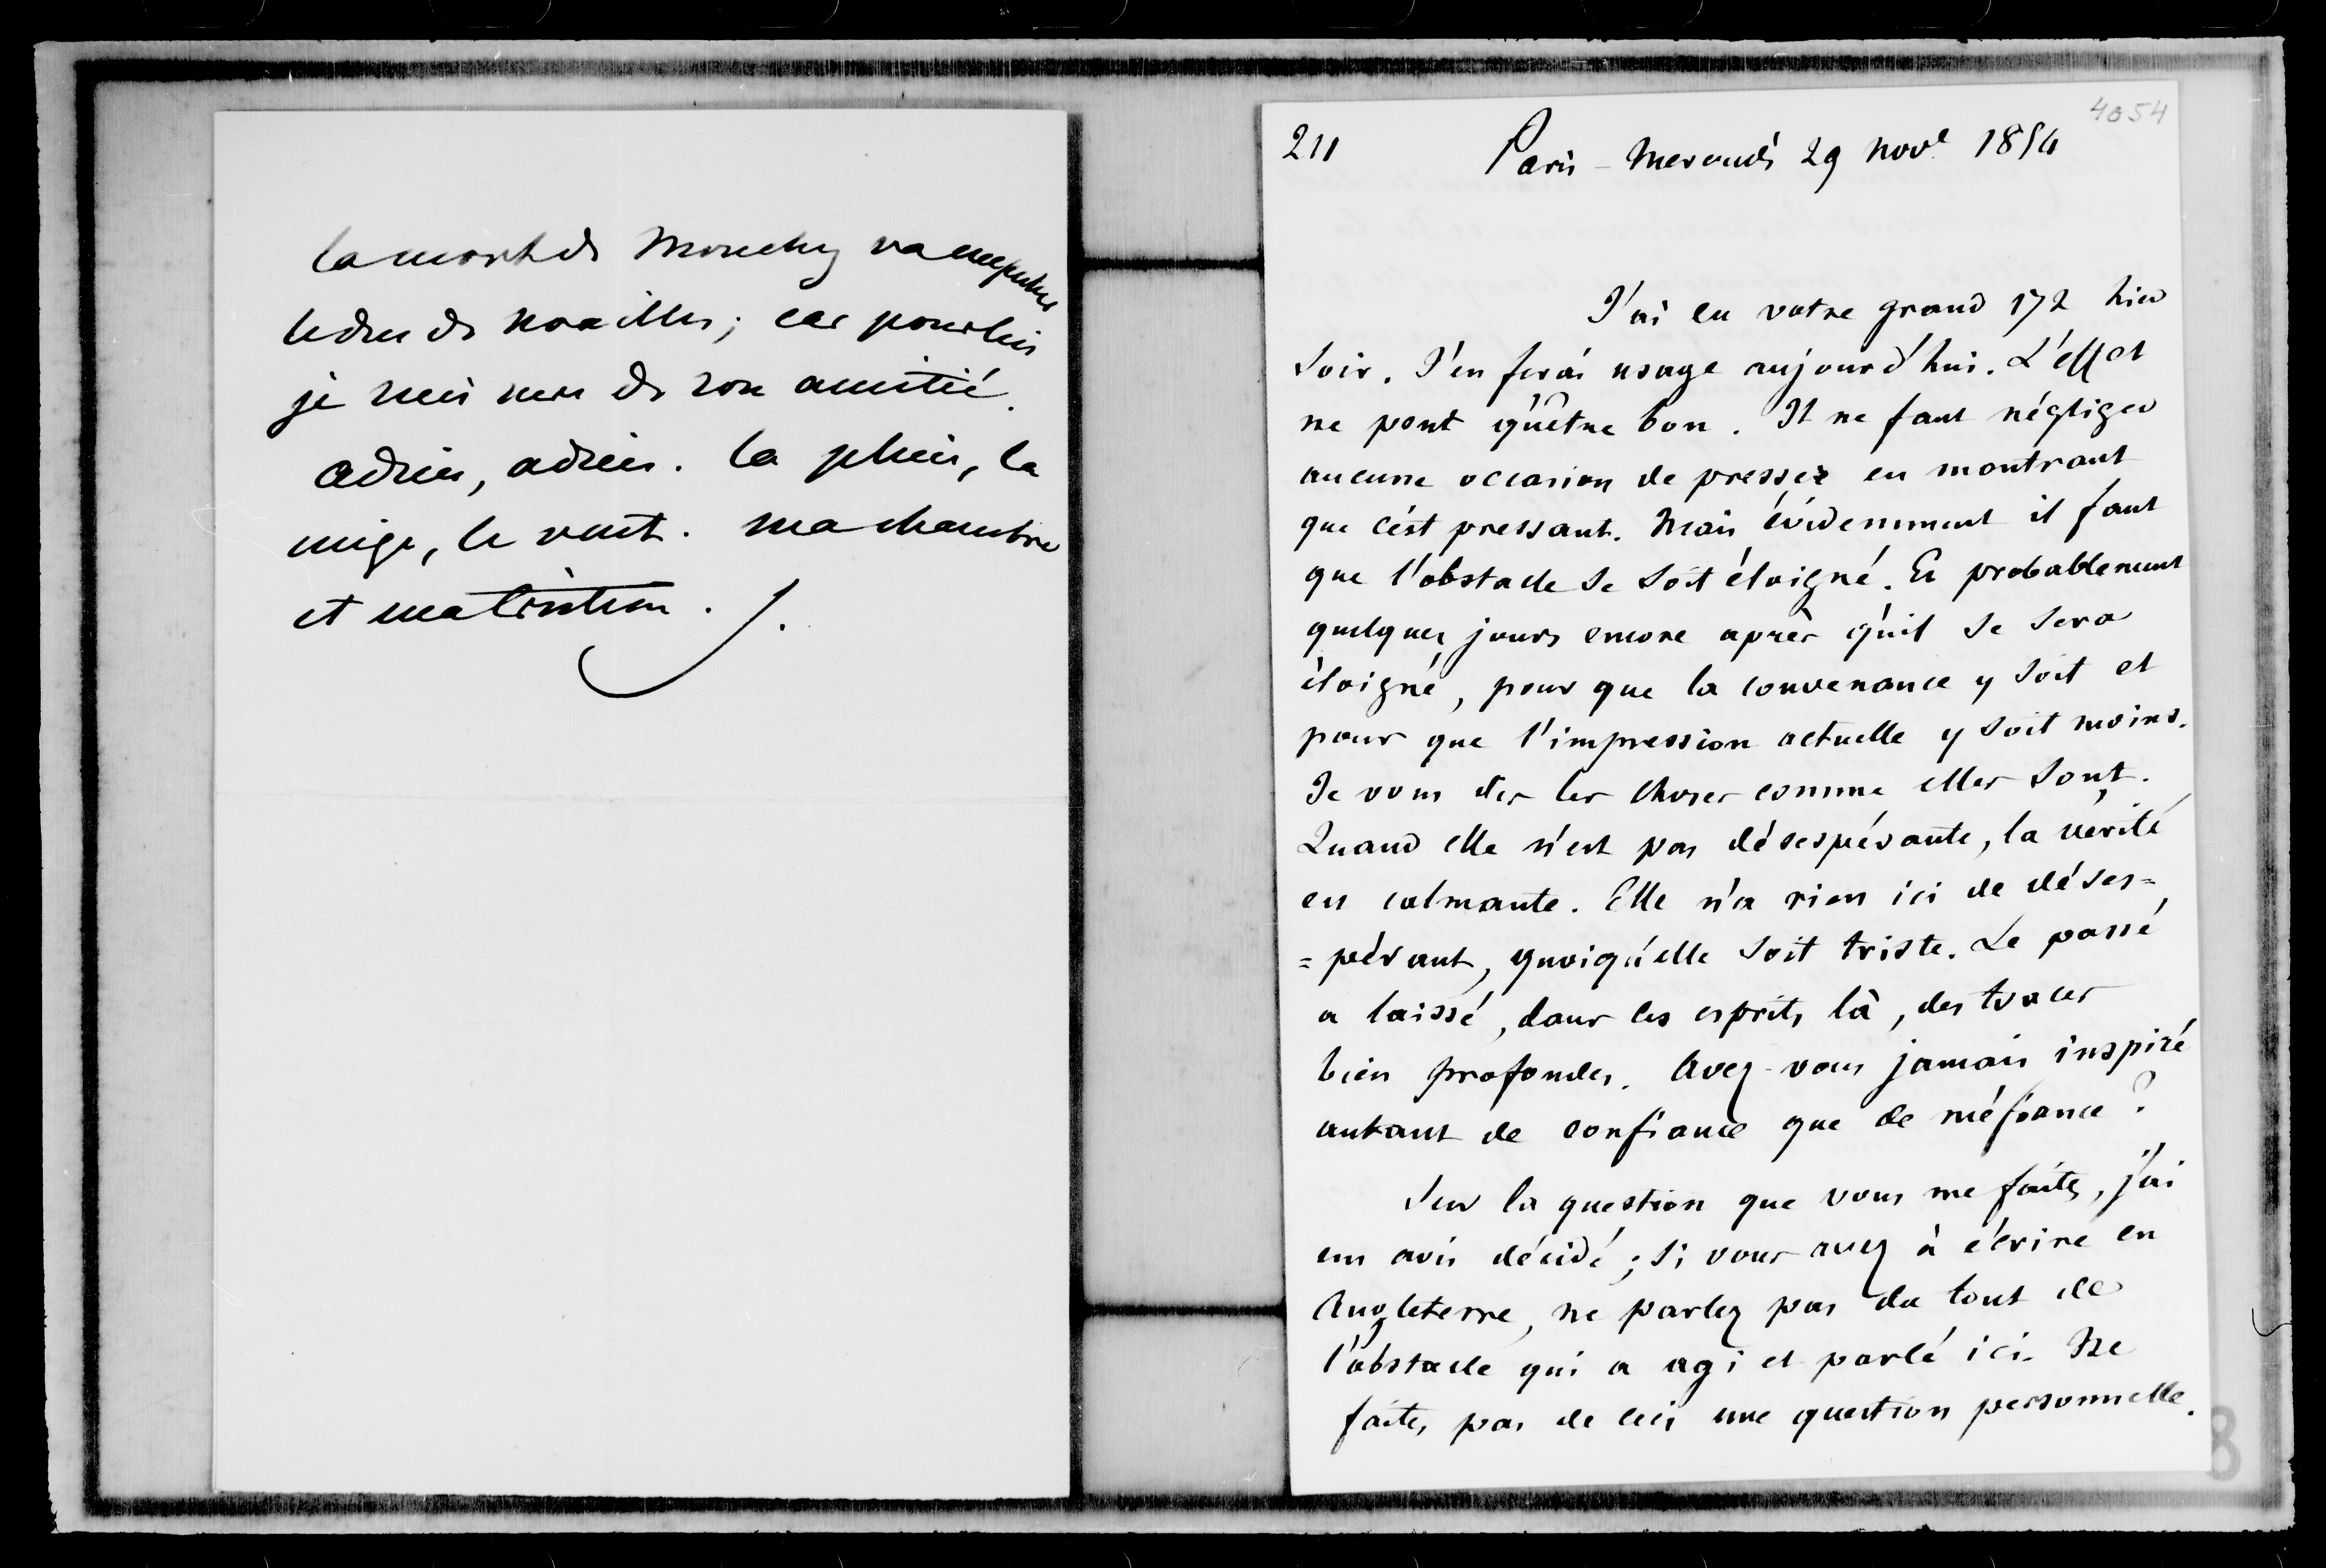 la mort de Mouchy va
le duc de Noailles ; car pour lui
je suis sure de son amitié.
adieu, adieu. la pluie, la
neige, le vent. ma chambre
et ma tristesse. J.
4054
211 Paris - Mercredi 29 Nov^e 1854
J'ai eu votre grand 172 hier
soir. J'en ferai usage aujourd'hui. L'effet
ne peut qu'être bon. Il ne faut négliger
aucune occasion de presser en montrant
que c'est pressant. Mais évidemment il faut
que l'obstacle se soit éloigné. Et probablement
quelques jours encore après qu'il se sera
éloigné, pour que la convenance y soit et
pour que l'impression actuelle y soit moins.
Je vous dis les choses comme elles sont.
Quand elle n'est pas désespérante, la vérité
est calmante. Elle n'a rien ici de déses=
=pérant, quoiqu'elle soit triste. Le passé
a laissé, dans les esprits là, des traces
bien profondes. Avez-vous jamais inspiré
autant de confiance que de méfiance ?
Sur la question que vous me faites, j'ai
un avis décidé ; si vous avez à écrire en
Angleterre, ne parlez pas du tout de
l'obstacle qui a agi et parlé ici. Ne
faites pas de ceci une question personnelle.
8